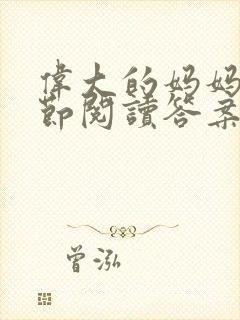 偉大的媽媽
節閱讀答案
曾泓